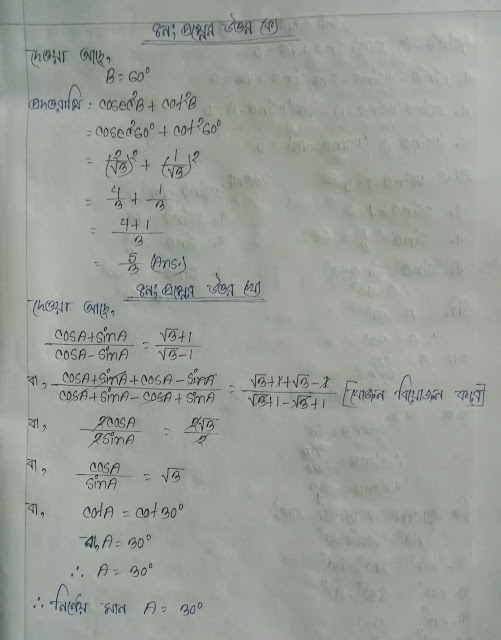 ৪নং প্রশ্নের উত্তর (ক)
দেওয়া আছে,
B = 60°
প্রদত্তরাশি = cosec²B + cot²B
= cosec²60° + cot²60°
= (2/√3)² + (1/√3)²
= 4/3 + 1/3
= (4+1)/3
= 5/3 (Ans.)
৪নং প্রশ্নের উত্তর (খ)
দেওয়া আছে,
(cosA+sinA)/(cosA-sinA) = (√3+1)/(√3-1)
বা, (cosA+sinA+cosA-sinA)/(cosA+sinA-cosA+sinA) = (√3+1+√3-1)/(√3+1-√3+1) [যোজন বিয়োজন করে]
বা, 2cosA/2sinA = 2√3/2
বা, cosA/sinA = √3
বা, cotA = cot30°
বা, A = 30°
∴ A = 30°
∴ নির্ণেয় মান A = 30°